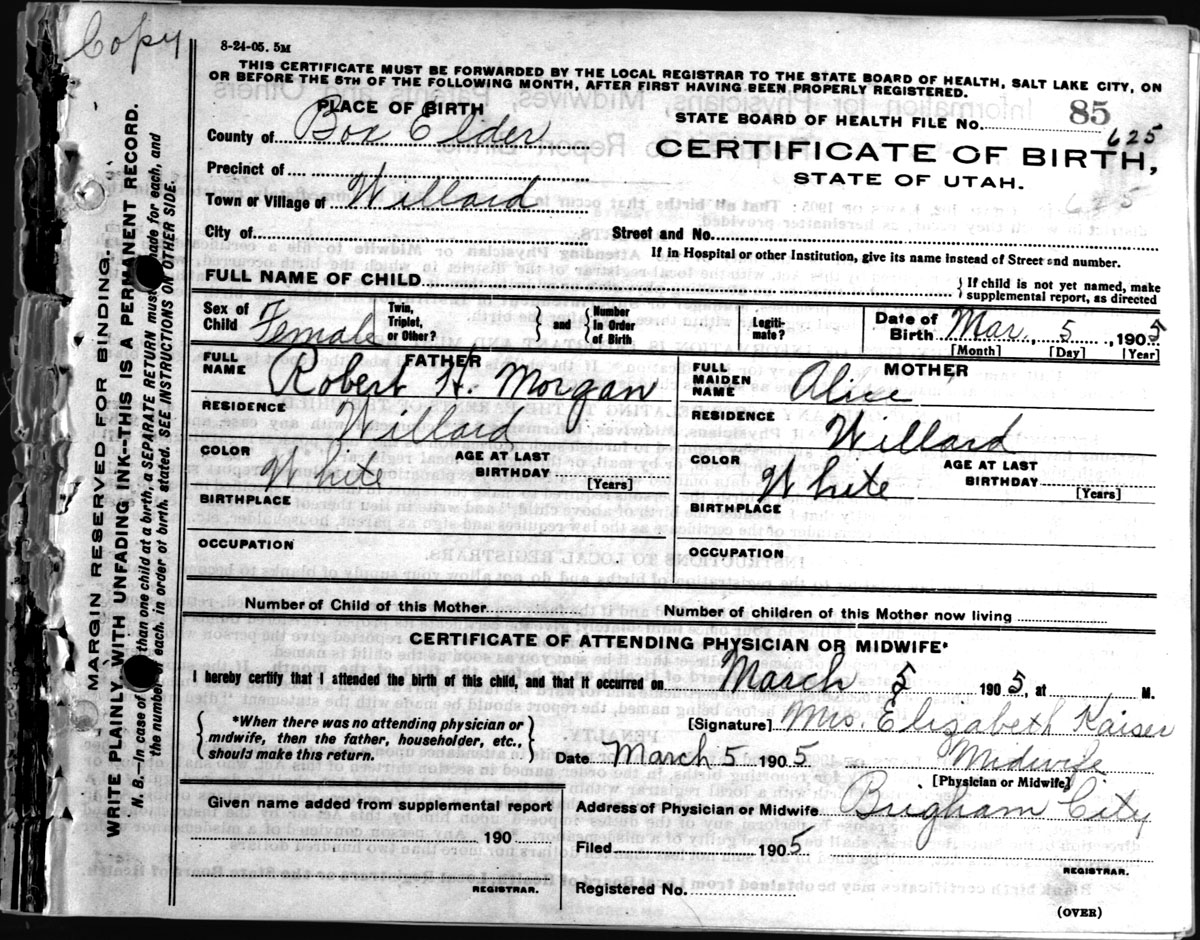 Copy
8-24-05. 5M
THIS CERTIFICATE MUST BE FORWARDED BY THE LOCAL REGISTRAR TO THE STATE BOARD OF HEALTH, SALT LAKE CITY, ON
OR BEFORE THE 5TH OF THE FOLLOWING MONTH, AFTER FIRST HAVING BEEN PROPERLY REGISTERED.
PLACE OF BIRTH
County of Box Elder
Precinct of
Town or Village of Willard
City of
STATE BOARD OF HEALTH FILE No. 85
625
CERTIFICATE OF BIRTH,
STATE OF UTAH.
625
Street and No.
If in Hospital or other Institution, give its name instead of Street and number.
FULL NAME OF CHILD
} If child is not yet named, make
supplemental report, as directed
Sex of Child Female
Twin, Triplet, or Other?
} and {
Number in Order of Birth
Legiti-mate?
Date of Birth Mar. 5, 1905
[Month] [Day] [Year]
FATHER
FULL NAME Robert H. Morgan
RESIDENCE Willard
COLOR White
AGE AT LAST BIRTHDAY
[Years]
BIRTHPLACE
OCCUPATION
MOTHER
FULL MAIDEN NAME Alice
RESIDENCE Willard
COLOR White
AGE AT LAST BIRTHDAY
[Years]
BIRTHPLACE
OCCUPATION
Number of Child of this Mother
Number of children of this Mother now living
CERTIFICATE OF ATTENDING PHYSICIAN OR MIDWIFE*
I hereby certify that I attended the birth of this child, and that it occurred on March 5 1905, at M.
{ *When there was no attending physician or
midwife, then the father, householder, etc.,
should make this return. }
[Signature] Mrs. Elizabeth Kaiser
Date March 5 1905
Midwife
[Physician or Midwife]
Given name added from supplemental report
190
REGISTRAR.
Address of Physician or Midwife Brigham City
Filed 1905
REGISTRAR.
Registered No.
(OVER)
MARGIN RESERVED FOR BINDING.
WRITE PLAINLY, WITH UNFADING INK—THIS IS A PERMANENT RECORD.
N. B.—In case of than one child at a birth, a SEPARATE RETURN must made for each, and
the number of each, in order of birth, stated. SEE INSTRUCTIONS ON OTHER SIDE.